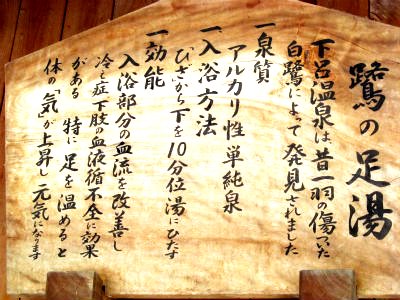 鷺の足湯
下呂温泉は昔一羽の傷ついた
白鷺によって発見されました
一泉質
アルカリ性単純泉
一入浴方法
「ひざ」から下を10分位湯にひたす
一効能
入浴部分の血流を改善し
冷え症下肢の血液循不全に効果
がある 特に足を温めると
体の「気」が上昇し元気になります